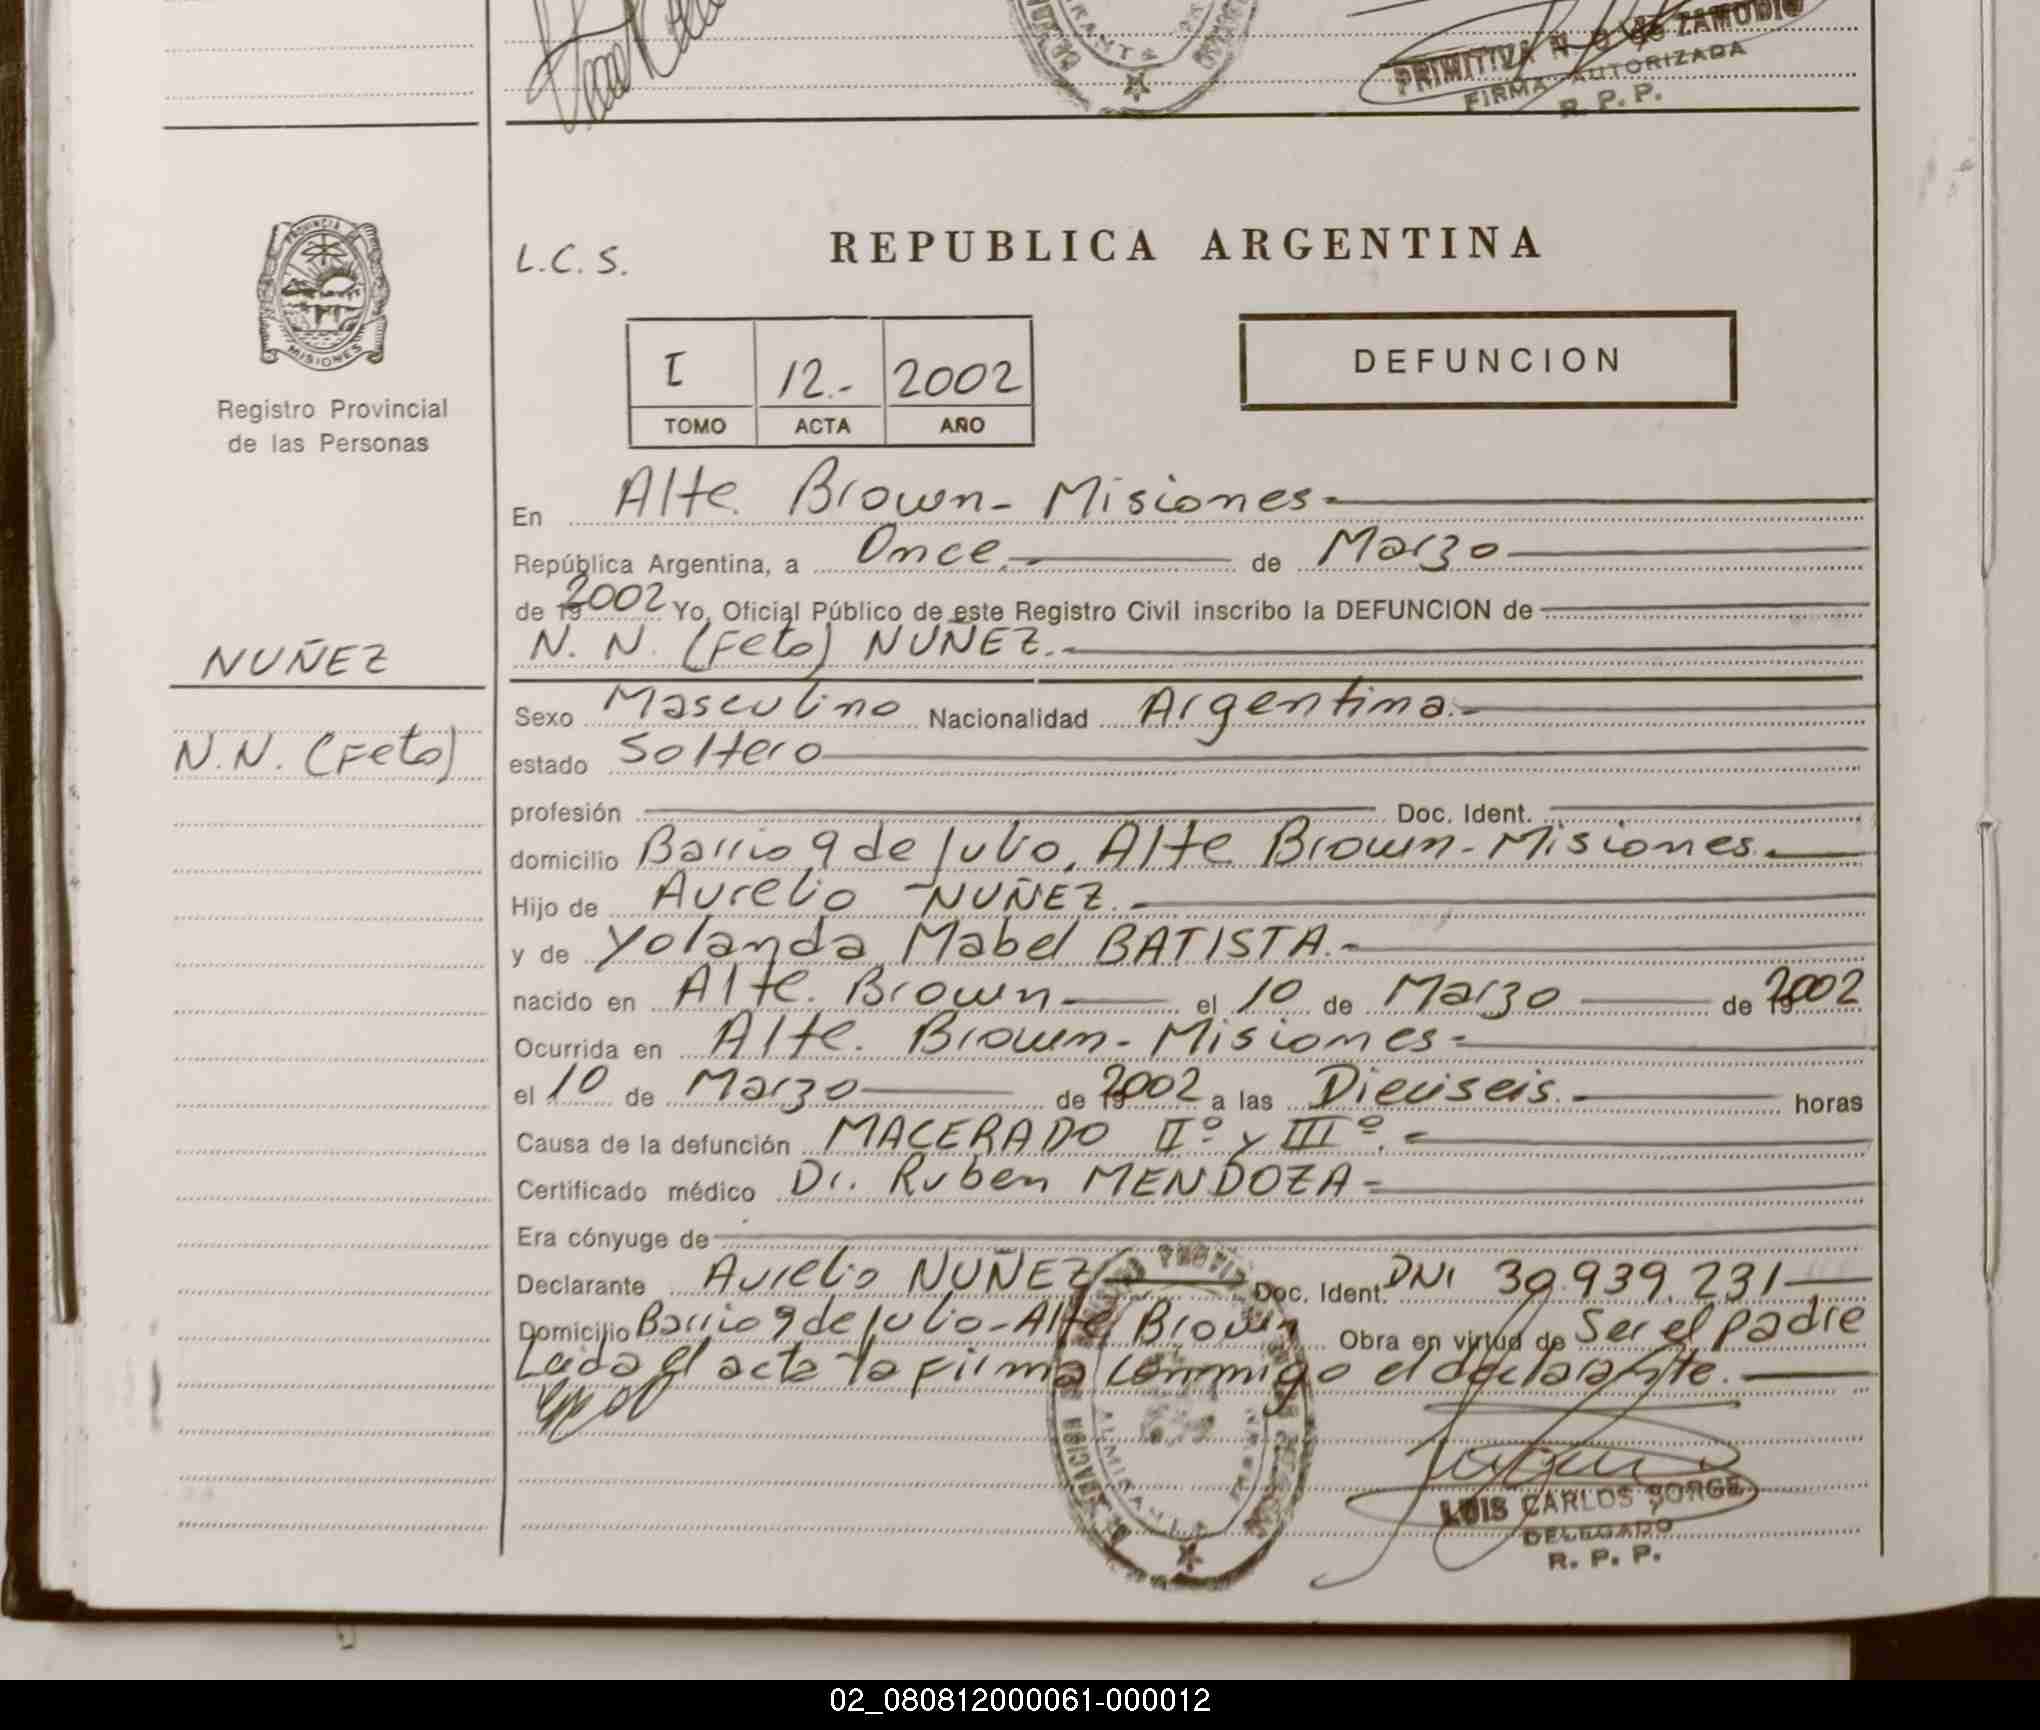 PRIMITIVA N. G de ZAMUDIO
FIRMA AUTORIZADA
R. P. P.
PROVINCIA DE
MISIONES
Registro Provincial
de las Personas
L.C.S.
REPUBLICA ARGENTINA
I 12.- 2002
TOMO ACTA AÑO
DEFUNCION
En Alte. Brown- Misiones-
República Argentina, a Once.- de Marzo
de 2002 Yo, Oficial Público de este Registro Civil inscribo la DEFUNCION de
NUÑEZ
N. N. (Feto) NUÑEZ.-
Sexo Masculino Nacionalidad Argentina.-
N.N. (Feto)
estado Soltero
profesión Doc. Ident.
domicilio Barrio 9 de Julio, Alte Brown-Misiones.
Hijo de Aurelio NUÑEZ.-
y de Yolanda Mabel BATISTA.-
nacido en Alte. Brown el 10 de Marzo de 2002
Ocurrida en Alte. Brown-Misiones-
el 10 de Marzo de 2002 a las Dieciseis.- horas
Causa de la defunción MACERADO IIº y IIIº.-
Certificado médico Dr. Ruben MENDOZA-
Era cónyuge de
Declarante Aurelio NUÑEZ Doc. Ident. DNI 30.939.231
Domicilio Barrio 9 de Julio-Alte Brown Obra en virtud de Ser el padre
Leida el acta la firma conmigo el declarante.
LUIS CARLOS SORGE
DELEGADO
R. P. P.
02_080812000061-000012